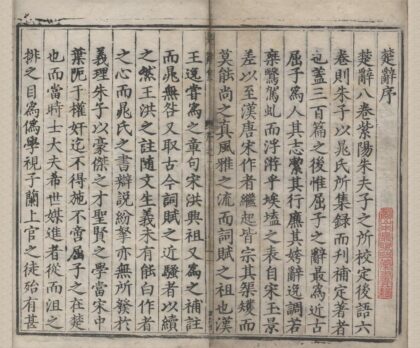 楚辭序
楚辭八卷紫陽朱夫子之所校定後語六
卷則朱子以晁氏所集録而刊補定著者
也蓋三百篇之後惟屈子之辭最爲近古
屈子爲人其志潔其行廉其姱辭逸調若
乘鷖駕虬而浮游乎埃壒之表自宋玉景
差以至漢唐宋作者繼起皆宗其矩矱而
莫能尚之真風雅之流而詞賦之祖也漢
王逸嘗爲之章句宋洪興祖又爲之補註
而晁無咎又取古今詞賦之近騷者以續
之然王洪之註隨文生義未有能白作者
之心而晁氏之書辯説紛拏亦無所發於
義理朱子以豪傑之才聖賢之學當宋中
葉阨於權奸迄不得施不啻屈子之在楚
也而當時士大夫希世媒進者從而沮之
排之目爲僞學視子蘭上官之徒殆有甚